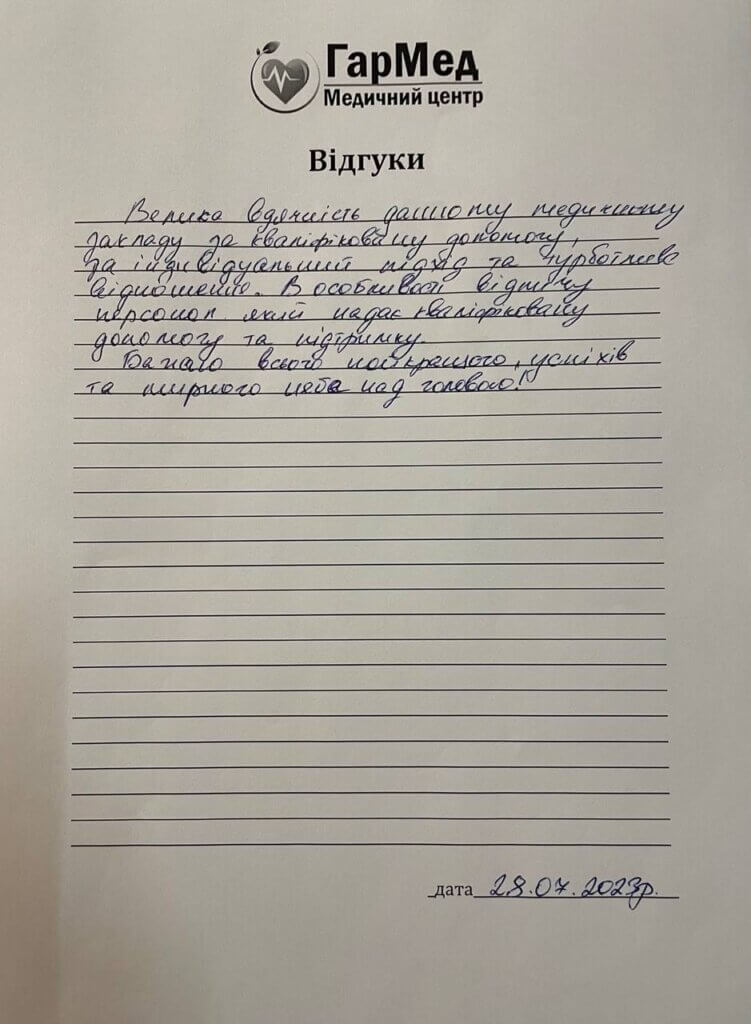 ГарМед
Медичний центр
Відгуки
Велика вдячність данному медичному
закладу за кваліфіковану допомогу,
за індивідуальний підхід та турботливе
відношення. В особливості відмічу
персонал який надає кваліфіковану
допомогу та підтримку.
Бажаю всього найкращого, успіхів
та мирного неба над головою!
дата 28.07.2023р.